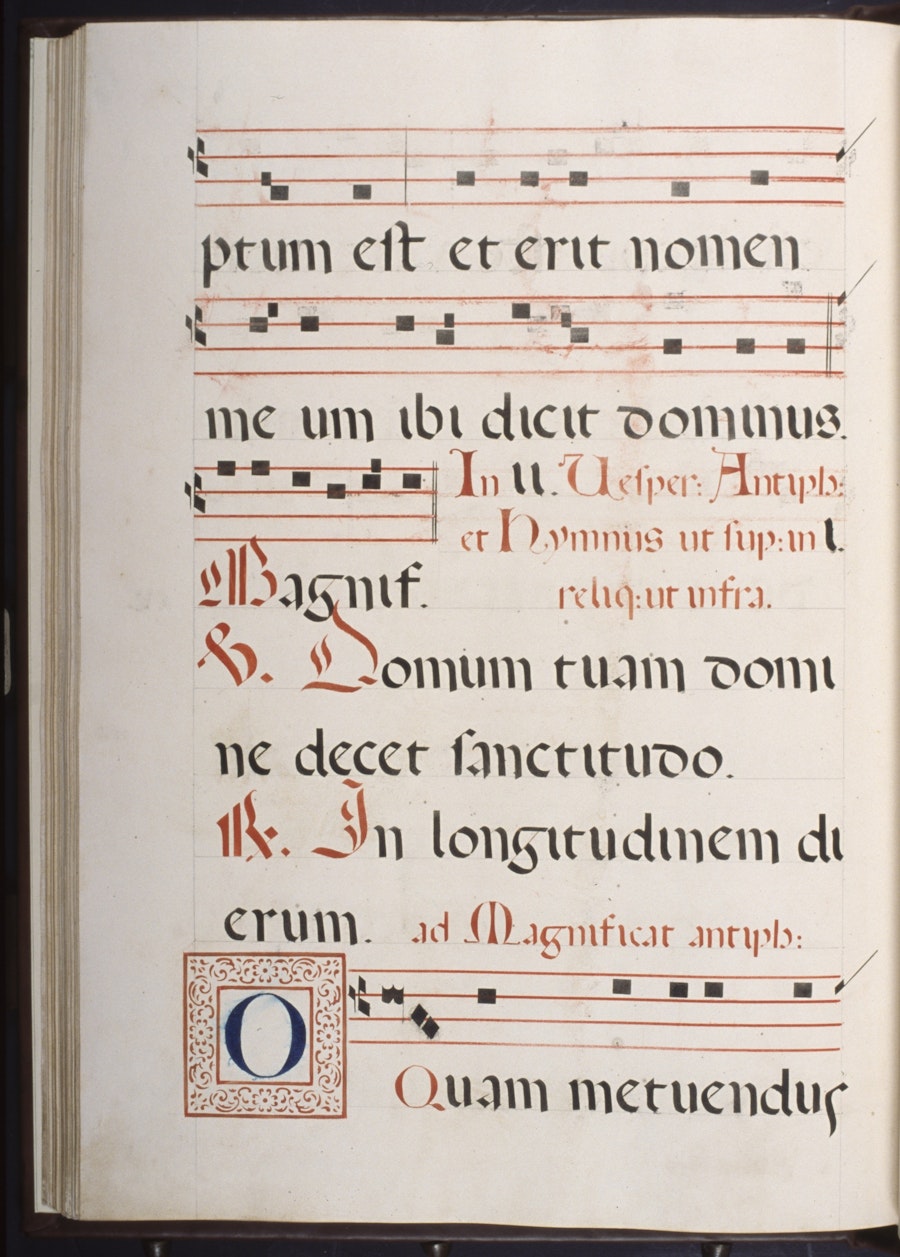 ptum eſt et erit nomen
me um ibi dicit dominus.
In II. Ueſper: Antiph:
et Hymnus ut ſup: in I.
Magnif. reliq: ut infra.
V. Domum tuam domi
ne decet ſanctitudo.
R. In longitudinem di
erum. ad Magnificat antiph:
O Quam metuendus